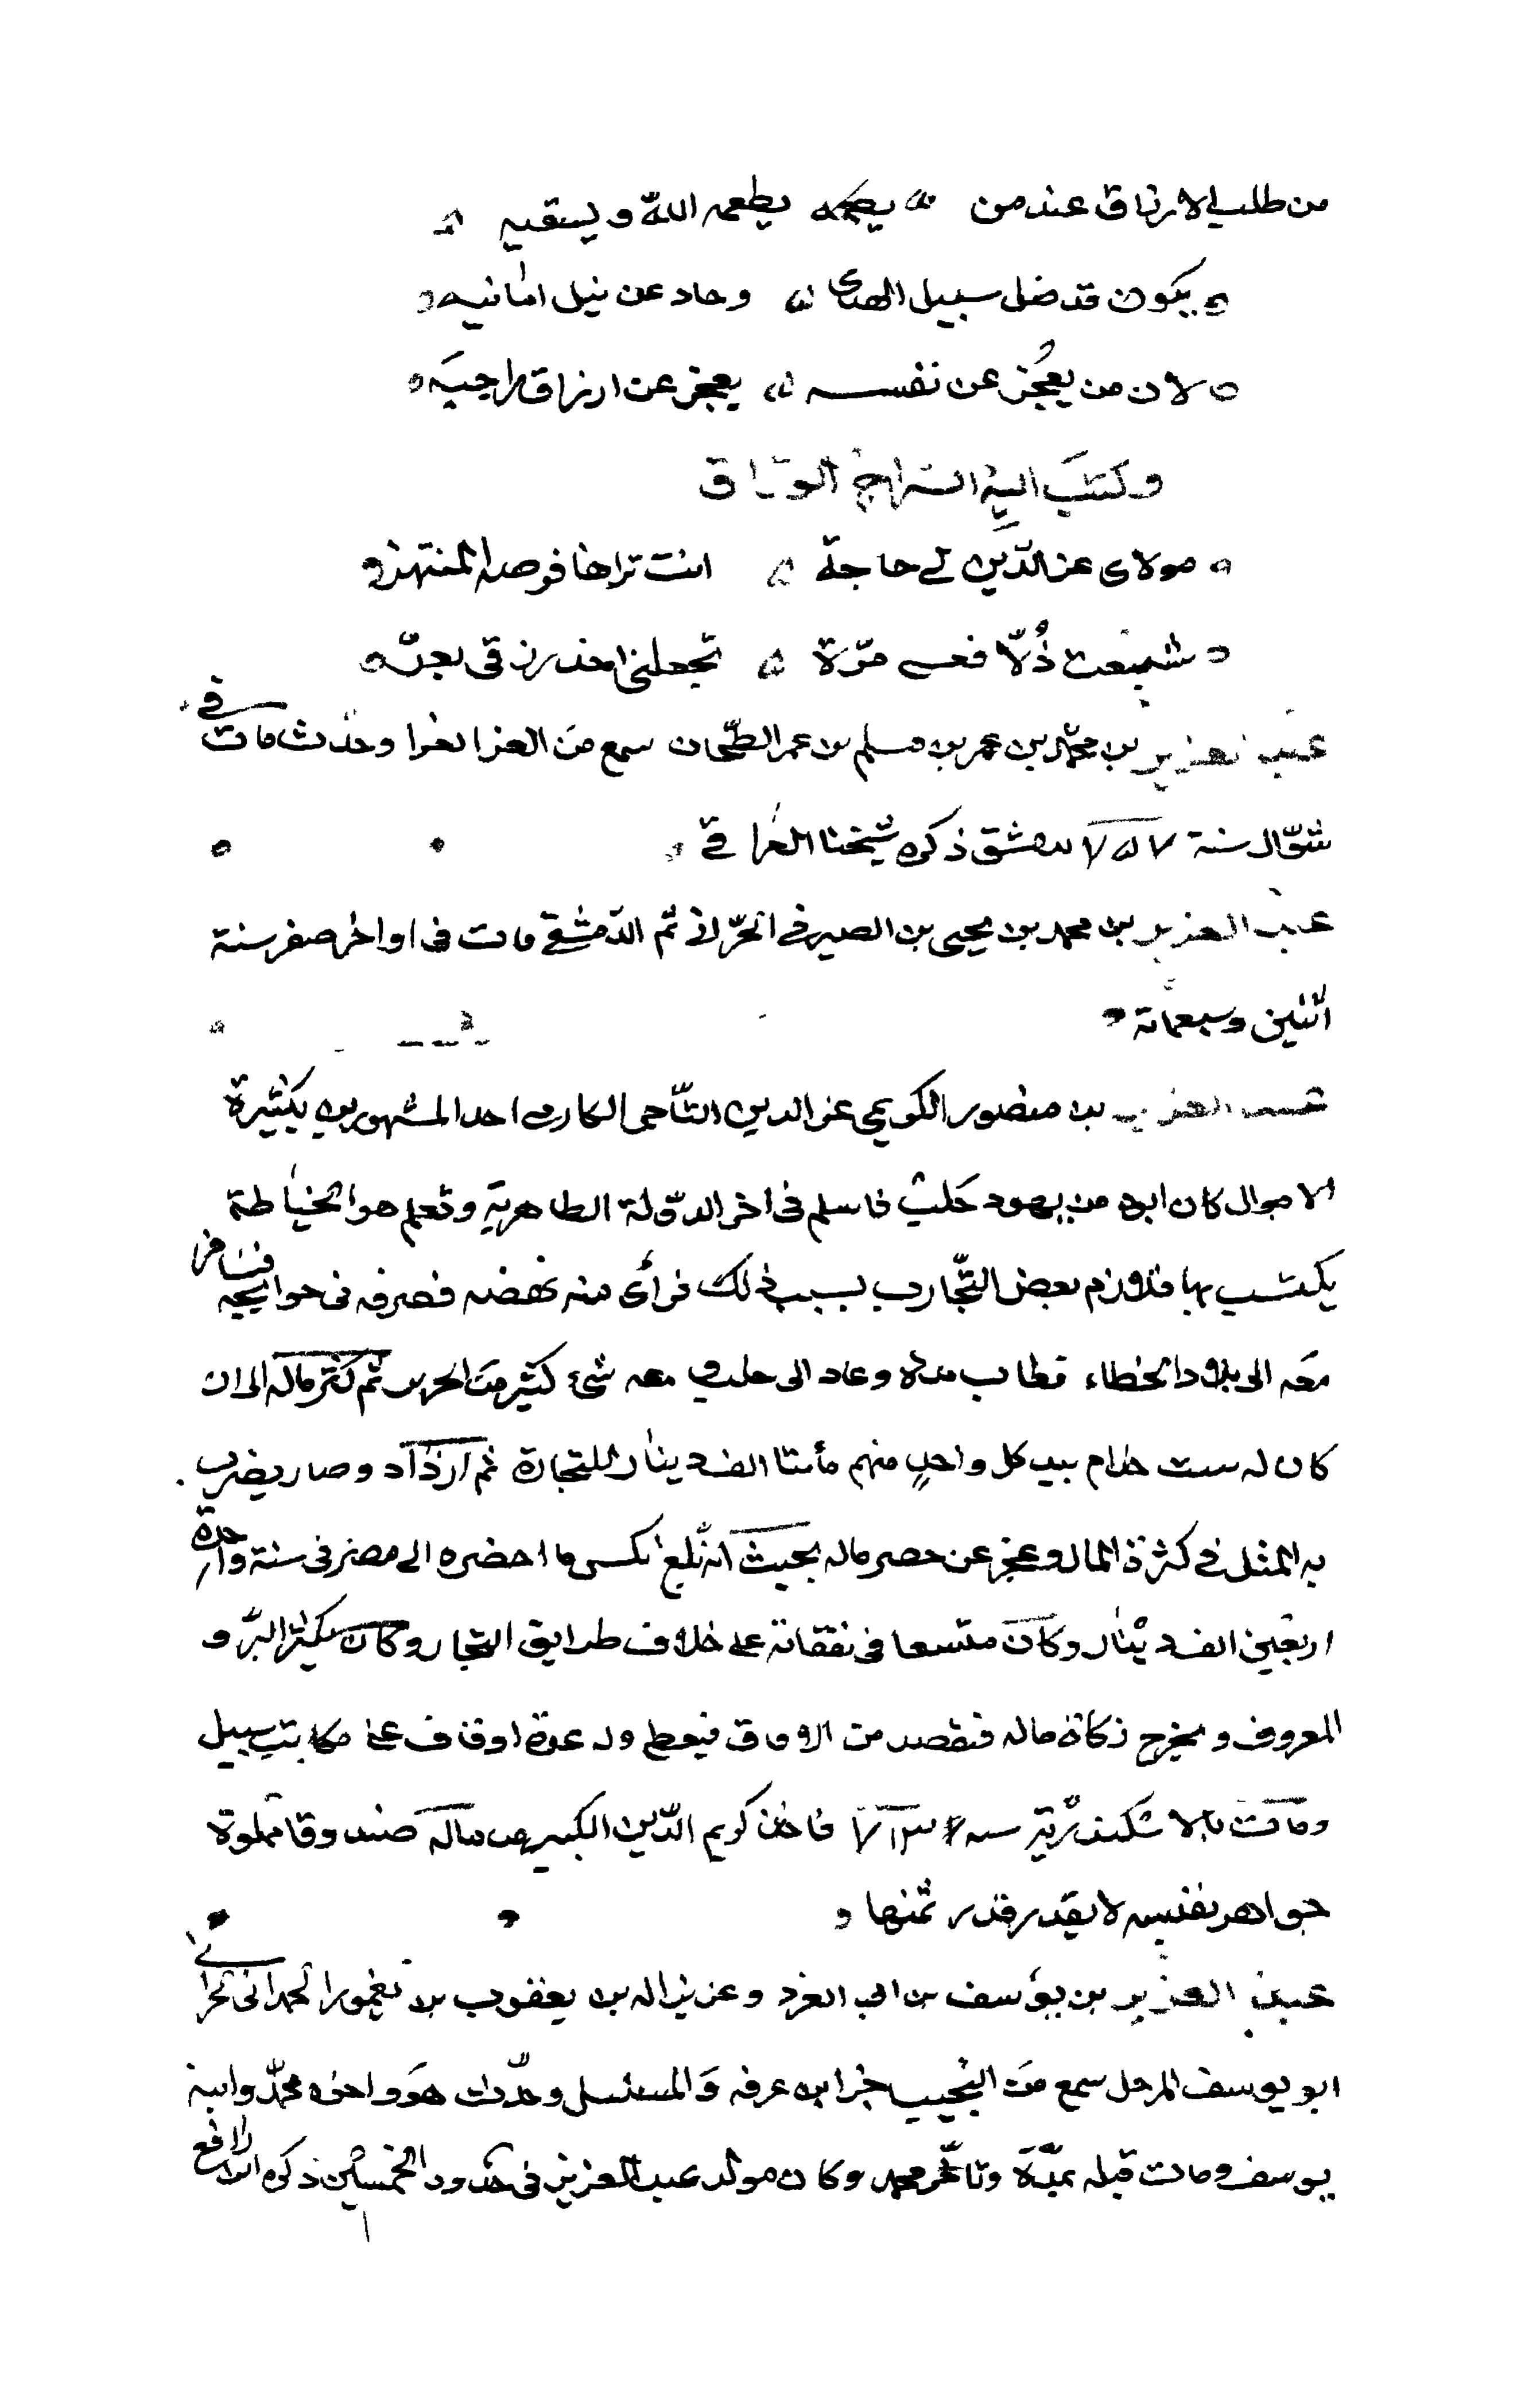 من طلب الارزاق عند من يطعمه الله ويسقيه
يكون قد ضل سبيل الهدى وحاد عن نيل امانيه
لان من يعجز عن نفسه يعجز عن ارزاق راجيه
وكتب اليه السراج الوراق
مولاى عز الدين لى حاجة انت تراها فرصة المنتهز
شبعت ذُلّا فعسى مرّة تجعلنى اخذ رزقى بعزّ
عبد العزيز بن محمّد بن عمر بن مسلم بن عمر الطحان سمع من العز الفرا وحدّث مات فى
شوّال سنة ٧٥٧ بدمشق ذكره شيخنا العراقى
عبد العزيز بن محمد بن يحيى بن الصيرفى الحرّانى ثم الدمشقى مات فى اواخر صفر سنة
اثنين وسبعمائة
عبد العزيز بن منصور الكويمى عز الدين التاجر الكارمى احد المشهورين بكثرة
الاموال كان ابوه من يهود حلب فاسلم فى اخر الدولة الظاهرية وتعلم هو الخياطة
يكتسب بها فلازم بعض التجار بسبب ذلك فرأى منه نهضة فصرفه فى حوايجه فسافر
معه الى بلاد الخطاء فطاب مدة وعاد الى حلب و معه شئ كثير من الحرير ثم كثر ماله الى ان
كان له ست خدام بيد كل واحدٍ منهم مأتا الف دينار للتجارة ثم ازداد وصار يضرب
به المثل فى كثرة المال وعجز عن حصر ماله بحيث انه بلغ مكس ما احضره الى مصر فى سنة واحدة
اربعين الف دينار وكان متسعا فى نفقاته على خلاف طرايق التجار وكان يكثر البرّ و
المعروف ويخرج زكاة ماله فيقصد من الافاق فيعطى وله عدة اوقاف على مكاتب سبيل
ومات بالاسكندرية سنة ٧١٣ فاخذ كريم الدين الكبير من ماله صندوقا مملوة
جواهر نفيسه لا يقدر قدر ثمنها
عبد العزيز بن يوسف بن ابى العز وعزيزاله بن يعقوب بن يغمور الهمدانى الحرانى
ابو يوسف المرحل سمع من النجيب جزا ابن عرفه والمسلسل وحدّث هو واخوه محمّد وابنه
يوسف ومات قبله بمدّة وتأخّر محمد وكان مولد عبد العزيز فى حدود الخمسين ذكره ابن رافع